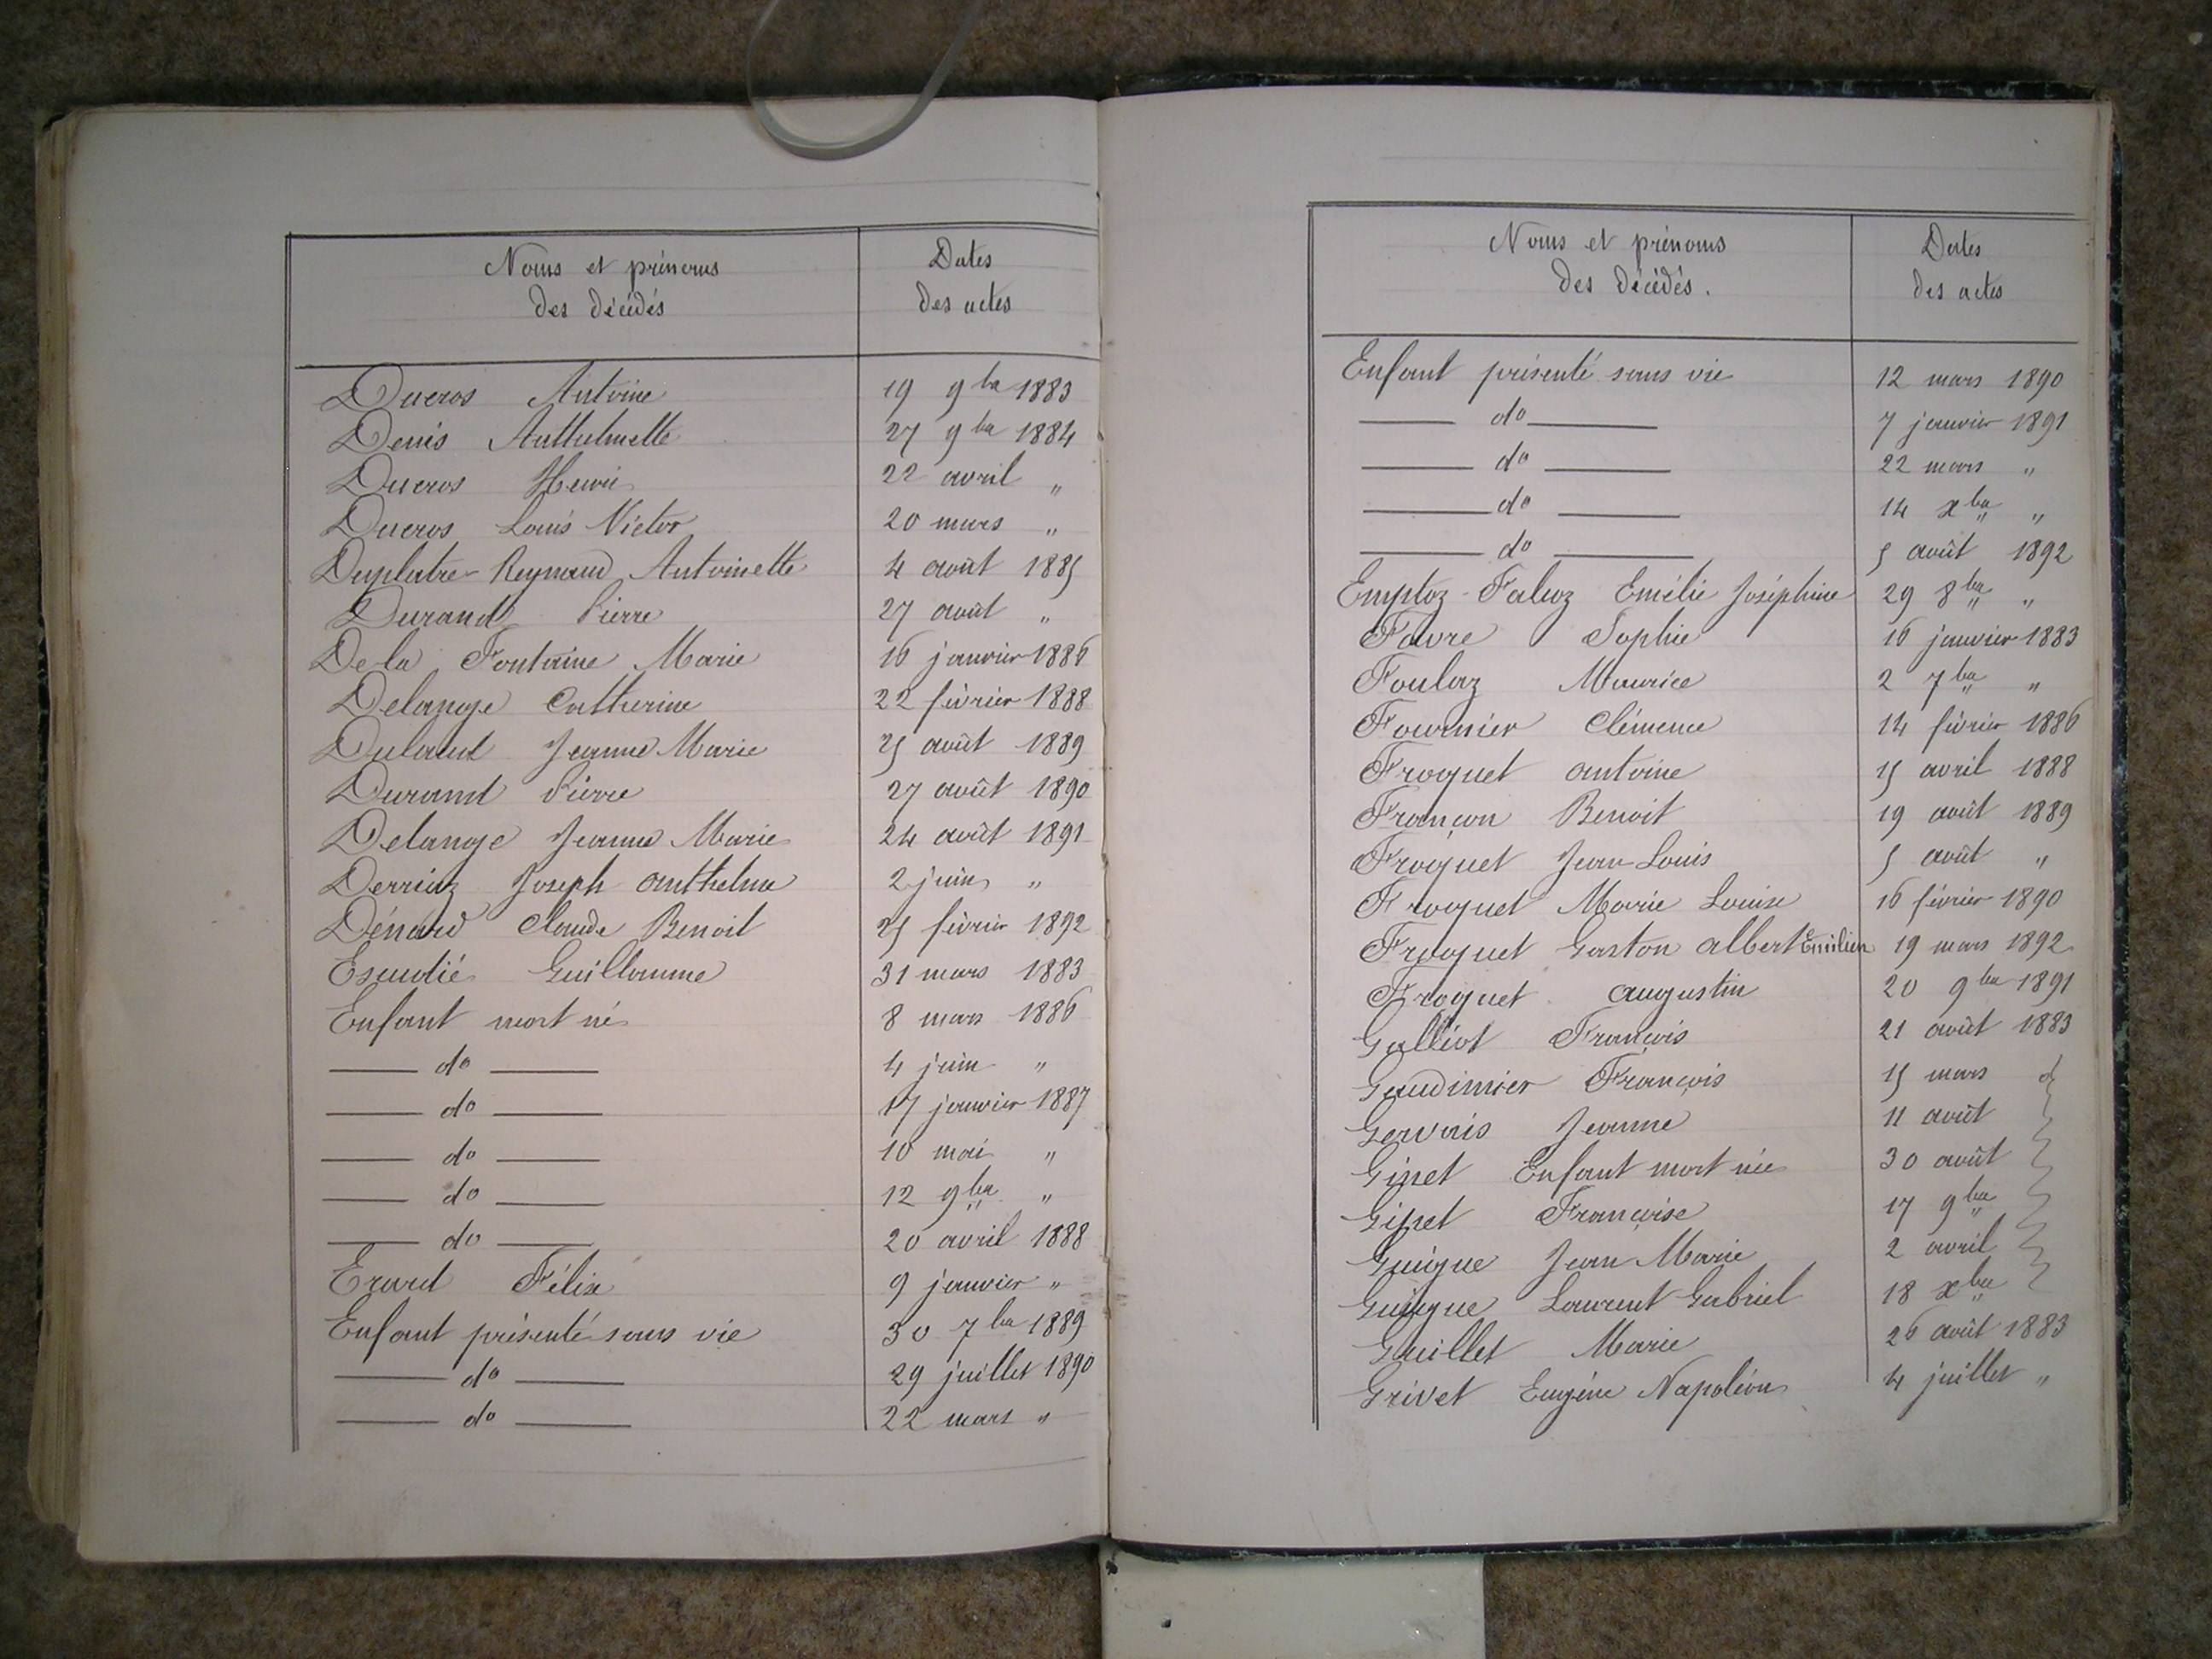 Noms et prénoms
des décédés
Dates
des actes
Ducros Antoine 19 9bre 1883
Denis Anthelmette 27 9bre 1884
Ducros Henri 22 avril "
Ducros Louis Victor 20 mars "
Duplatre-Reynaud Antoinette 4 août 1885
Durand Pierre 27 août "
De la Fontaine Marie 16 janvier 1886
Delange Catherine 22 février 1888
Dulaut Jeanne Marie 25 août 1889
Durand Pierre 27 août 1890
Delange Jeanne Marie 24 août 1891
Derriez Joseph Anthelme 2 juin "
Dénard Claude Benoit 25 février 1892
Escudié Guillaume 31 mars 1883
Enfant mort né 8 mars 1886
— do — 4 juin "
— do — 17 janvier 1887
— do — 10 mai "
— do — 12 9bre "
— do — 20 avril 1888
Erard Félix 9 janvier "
Enfant présenté sans vie 30 7bre 1889
— do — 29 juillet 1890
— do — 22 mars "
Noms et prénoms
des décédés.
Dates
des actes
Enfant présenté sans vie 12 mars 1890
— do — 7 janvier 1891
— do — 22 mars "
— do — 14 xbre "
— do — 5 août 1892
Emptoz-Falcoz Emélie Joséphine 29 8bre "
Favre Sophie 16 janvier 1883
Foulaz Maurice 2 7bre "
Fournier Clémence 14 février 1886
Froquet Antoine 15 avril 1888
Françon Benoit 19 août 1889
Froquet Jean-Louis 5 août "
Froquet Marie Louise 16 février 1890
Froquet Gaston Albert Emilien 19 mars 1892
Froquet Augustin 20 9bre 1891
Galliot François 21 août 1883
Gaudinier François 15 mars d
Gervais Jeanne 11 août
Ginet Enfant mort née 30 août
Ginet Françoise 17 9bre
Guigue Jean Marie 2 avril
Guigue Laurent Gabriel 18 xbre
Guillet Marie 26 août 1883
Grivet Eugène Napoléon 4 juillet "